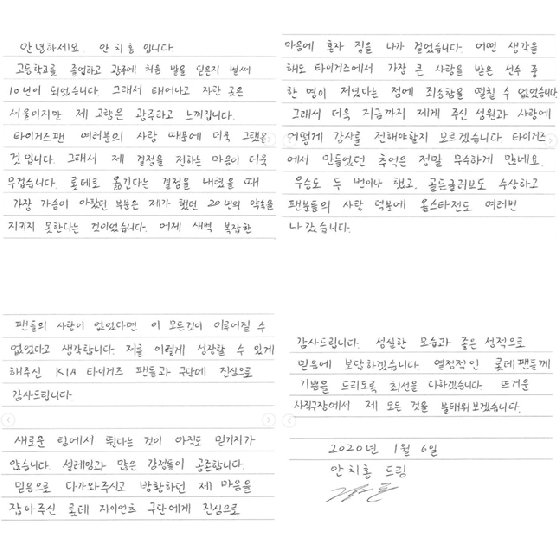 안녕하세요. 안치홍 입니다
고등학교를 졸업하고 광주에 처음 발을 딛은지 벌써
10년이 되었습니다. 그래서 태어나고 자란 곳은
서울이지만 제 고향은 광주라고 느껴집니다.
타이거즈팬 여러분의 사랑 때문에 더욱 그랬을
것 입니다. 그래서 제 결정을 전하는 마음이 더욱
무겁습니다. 롯데로 옮긴다는 결정을 내렸을 때
가장 가슴이 아팠던 부분은 제가 했던 20년의 약속을
지키지 못한다는 것이었습니다. 어제 새벽 복잡한
마음에 혼자 짐을 나가 걸었습니다. 어떤 생각을
해도 타이거즈에서 가장 큰 사랑을 받은 선수 중
한 명이 저였다는 점에 죄송함을 떨칠 수 없었습니다.
그래서 더욱 지금까지 제게 주신 성원과 사랑에
어떻게 감사를 전해야할지 모르겠습니다 타이거즈
에서 만들었던 추억은 정말 무수하게 많네요.
우승도 두 번이나 했고, 골든글러브도 수상하고
팬분들의 사랑 덕분에 올스타전도 여러번
나갔습니다.
팬들의 사랑이 없었다면 이 모든것이 이루어질 수
없었다고 생각합니다. 저를 이렇게 성장할 수 있게
해주신 KIA 타이거즈 팬들과 구단에 진심으로
감사드립니다.
새로운 팀에서 뛴다는 것이 아직도 믿기지가
않습니다. 설레임과 많은 감정들이 공존합니다.
믿음으로 다가와주시고 방황하던 제 마음을
잡아주신 롯데 자이언츠 구단에게 진심으로
감사드립니다. 성실한 모습과 좋은 성적으로
믿음에 보답하겠습니다 열정적인 롯데 팬들께
기쁨을 드리도록 최선을 다하겠습니다 뜨거운
사직구장에서 제 모든 것을 불태워보겠습니다.
2020년 1월 6일
안치홍 드림